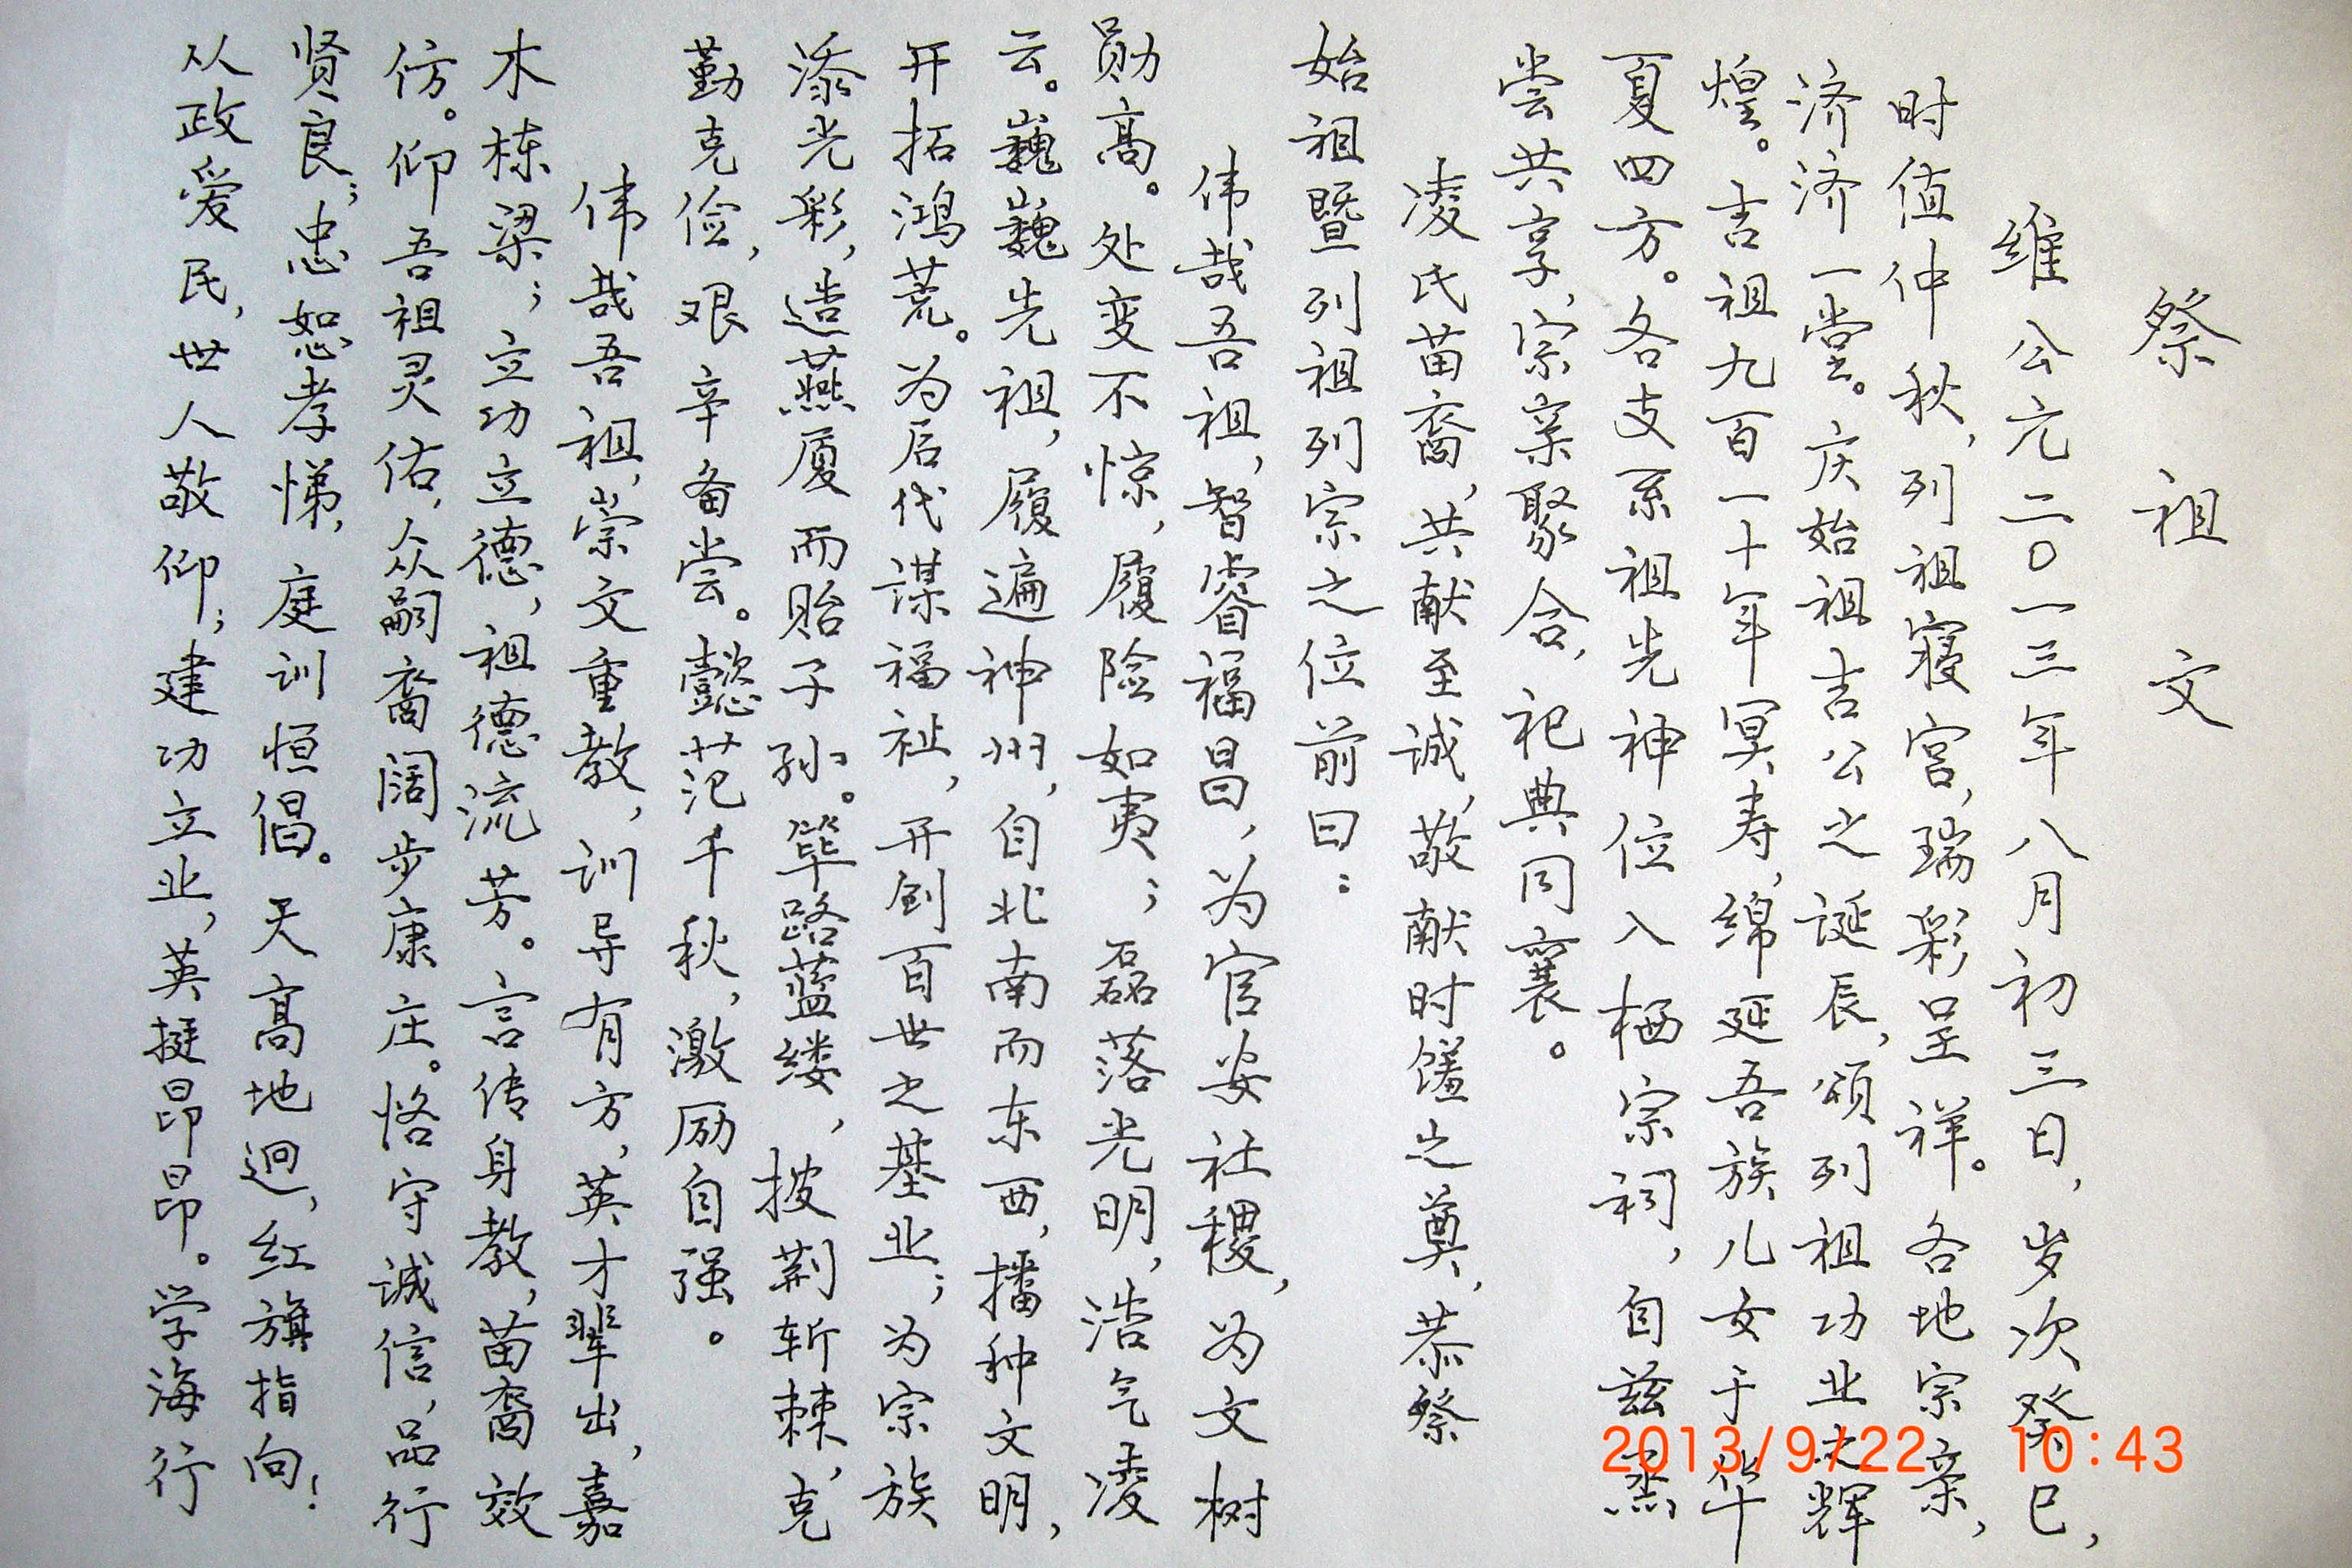 祭祖文
维公元二〇一三年八月初三日，岁次癸巳，
时值仲秋，列祖寝宫，瑞彩呈祥。各地宗亲，
济济一堂。庆始祖吉公之诞辰，颂列祖功业之辉
煌。吉祖九百一十年冥寿，绵延吾族儿女于华
夏四方。各支系祖先神位入栖宗祠，自兹烝
尝共享，宗亲聚合，祀典同襄。
凌氏苗裔，共献至诚，敬献时馐之奠，恭祭
始祖暨列祖列宗之位前曰：
伟哉吾祖，智睿福昌，为官安社稷，为文树
勋高。处变不惊，履险如夷；磊落光明，浩气凌
云。巍巍先祖，履遍神州，自北南而东西，播种文明，
开拓鸿荒。为后代谋福祉，开创百世之基业；为宗族
添光彩，造燕厦而贻子孙。筚路蓝缕，披荆斩棘，克
勤克俭，艰辛备尝。懿范千秋，激励自强。
伟哉吾祖，崇文重教，训导有方，英才辈出，嘉
木栋梁；立功立德，祖德流芳。言传身教，苗裔效
仿。仰吾祖灵佑，众嗣裔阔步康庄。恪守诚信，品行
贤良；忠恕孝悌，庭训恒倡。天高地迥，红旗指向！
从政爱民，世人敬仰；建功立业，英挺昂昂。学海行
2013/9/22 10:43